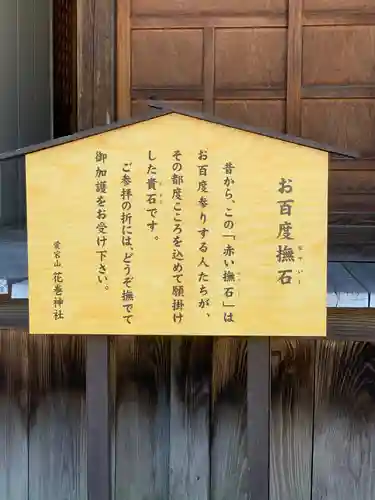 お百度撫石
昔から、この「赤い撫石」は
お百度参りする人たちが、
その都度こころを込めて願掛け
した貴石です。
ご参拝の折には、どうぞ撫でて
御加護をお受け下さい。
愛宕山 花巻神社